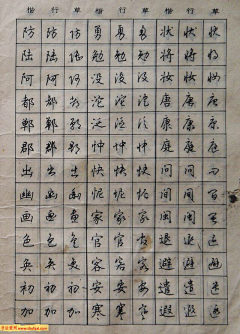 楷 行 草 楷 行 草 楷 行 草
防 防 防 勇 勇 勇 状 状 状
陆 陆 陆 勉 勉 勉 将 将 将
阿 阿 阿 没 没 没 妆 妆 妆
都 都 都 沱 沱 沱 唐 唐 唐
郸 郸 郸 泛 泛 泛 康 康 康
郡 郡 郡 忡 忡 忡 庸 庸 庸
出 出 出 快 快 快 问 问 问
幽 幽 幽 怩 怩 怩 间 间 间
画 画 画 家 家 家 闽 闽 闽
色 色 色 官 官 官 退 退 退
奂 奂 奂 容 容 容 避 避 避
初 初 初 安 安 安 遣 遣 遣
加 加 加 寒 寒 寒 遐 遐 遐